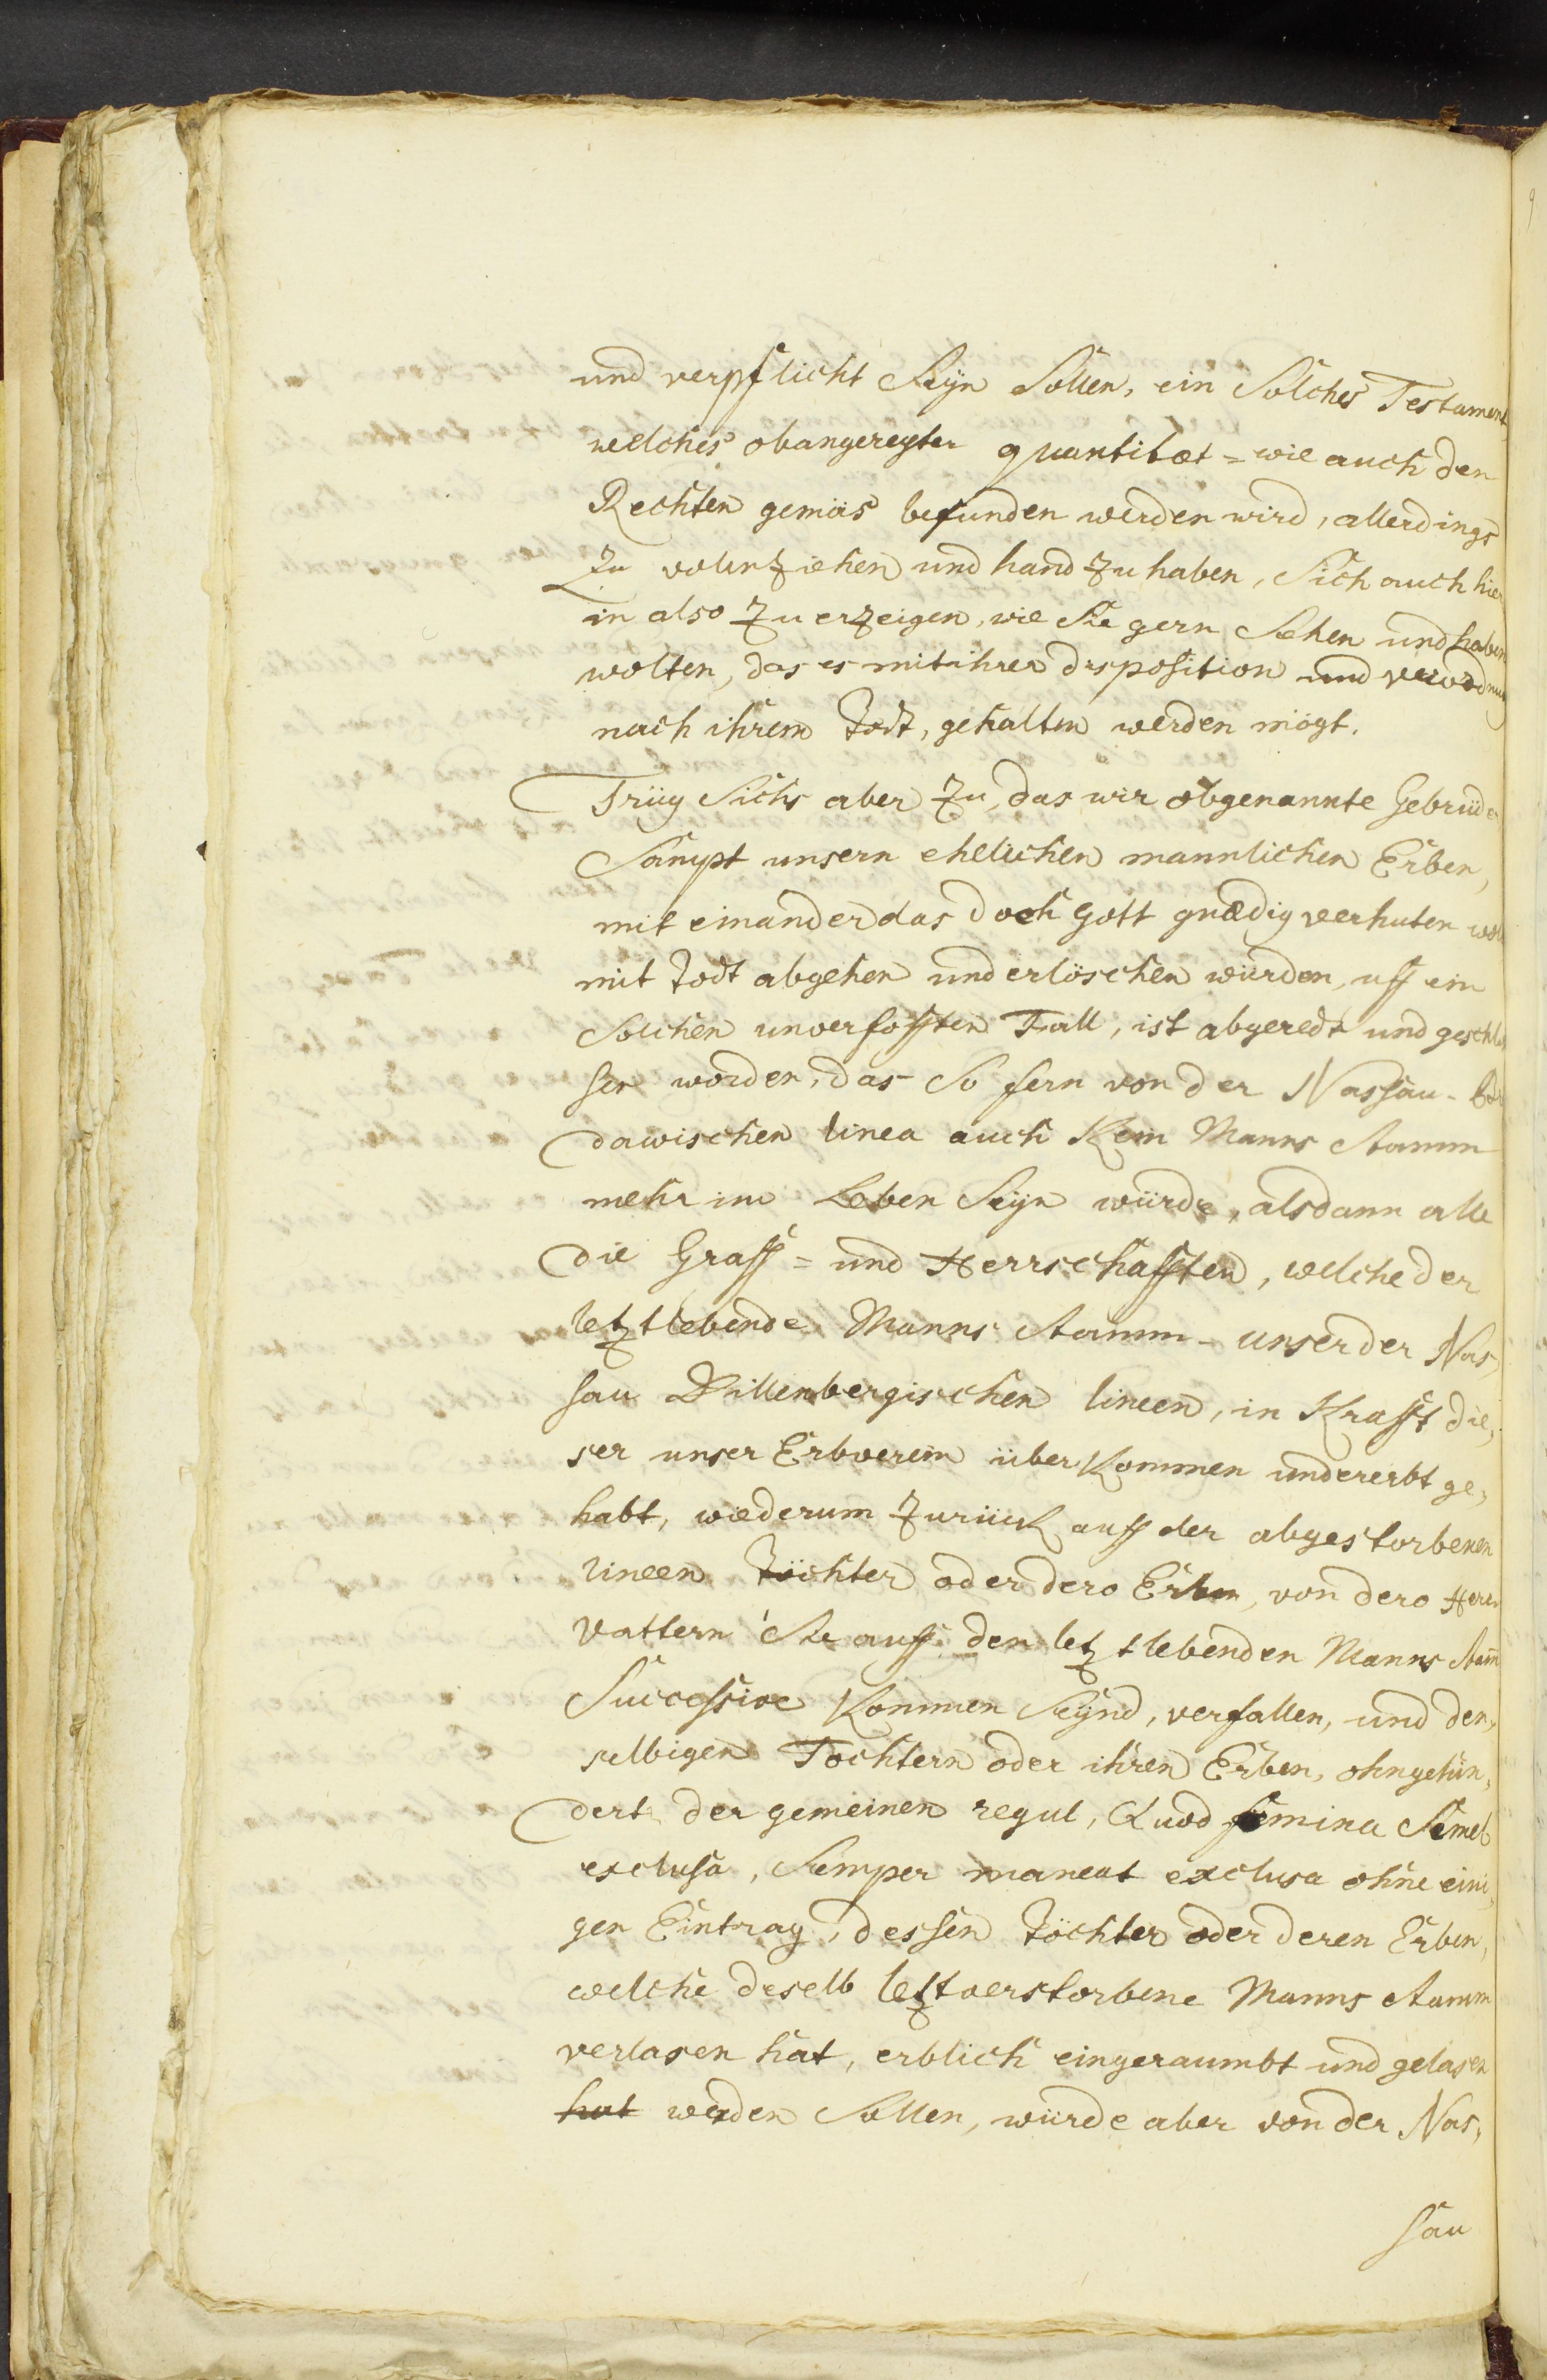 und verpflicht Seyn Sollen, ein Solches Testament,
welches obangeregter quantitæt = wie auch den
Rechten gemäs befunden werden wird, allerdings
Zu volnziehen und hand zu haben, Sich auch hier
in also Zu erzeigen, wie Sie gern Sehen und haben
wolten, das es mit ihrer disposition und verordnung
nach ihrem Todt, gehalten werden mögt.
Trüg Sichs aber Zu, das wir obgenannte Gebrüder
Sampt unsern ehelichen mannlichen Erben,
mit einander das doch Gott gnædig verhuten wol
mit Todt abgehen und erlöschen würden, uff ein
Solchen unverhofften Fall, ist abgeredt und geschlos
sen worden, das So fern von der Nassau-
dawischen linea auch Kein Manns Stamm
mehr im Leben Seyn würde, alsdann alle
die Graff = und Herrschafften, welche der
letztlebende Manns Stamm unser der Nas,
sau Dillenbergischen lineen, in Krafft die,
ser unser Erbverein überkommen und ererbt ge,
habt, wiederum Zurück auff der abgestorbenen
lineen Töchter oder dero Erben, von dero Herrn
Vattern Sie auff den letztlebenden Manns Stam̄
Successive Kommen Seynd, verfallen, und den,
selbigen Tochtern oder ihren Erben, ohngehin,
dert der gemeinen regul, Quod femina Semel
exclusa, Semper maneat exclusa ohne eini,
gen Eintrag, dessen Töchter oder deren Erben,
welche deselb letztverstorbene Manns Stamm
verlasen hat, erblich eingeraumbt und gelasen
hat werden Sollen, würde aber von der Nas,
sau